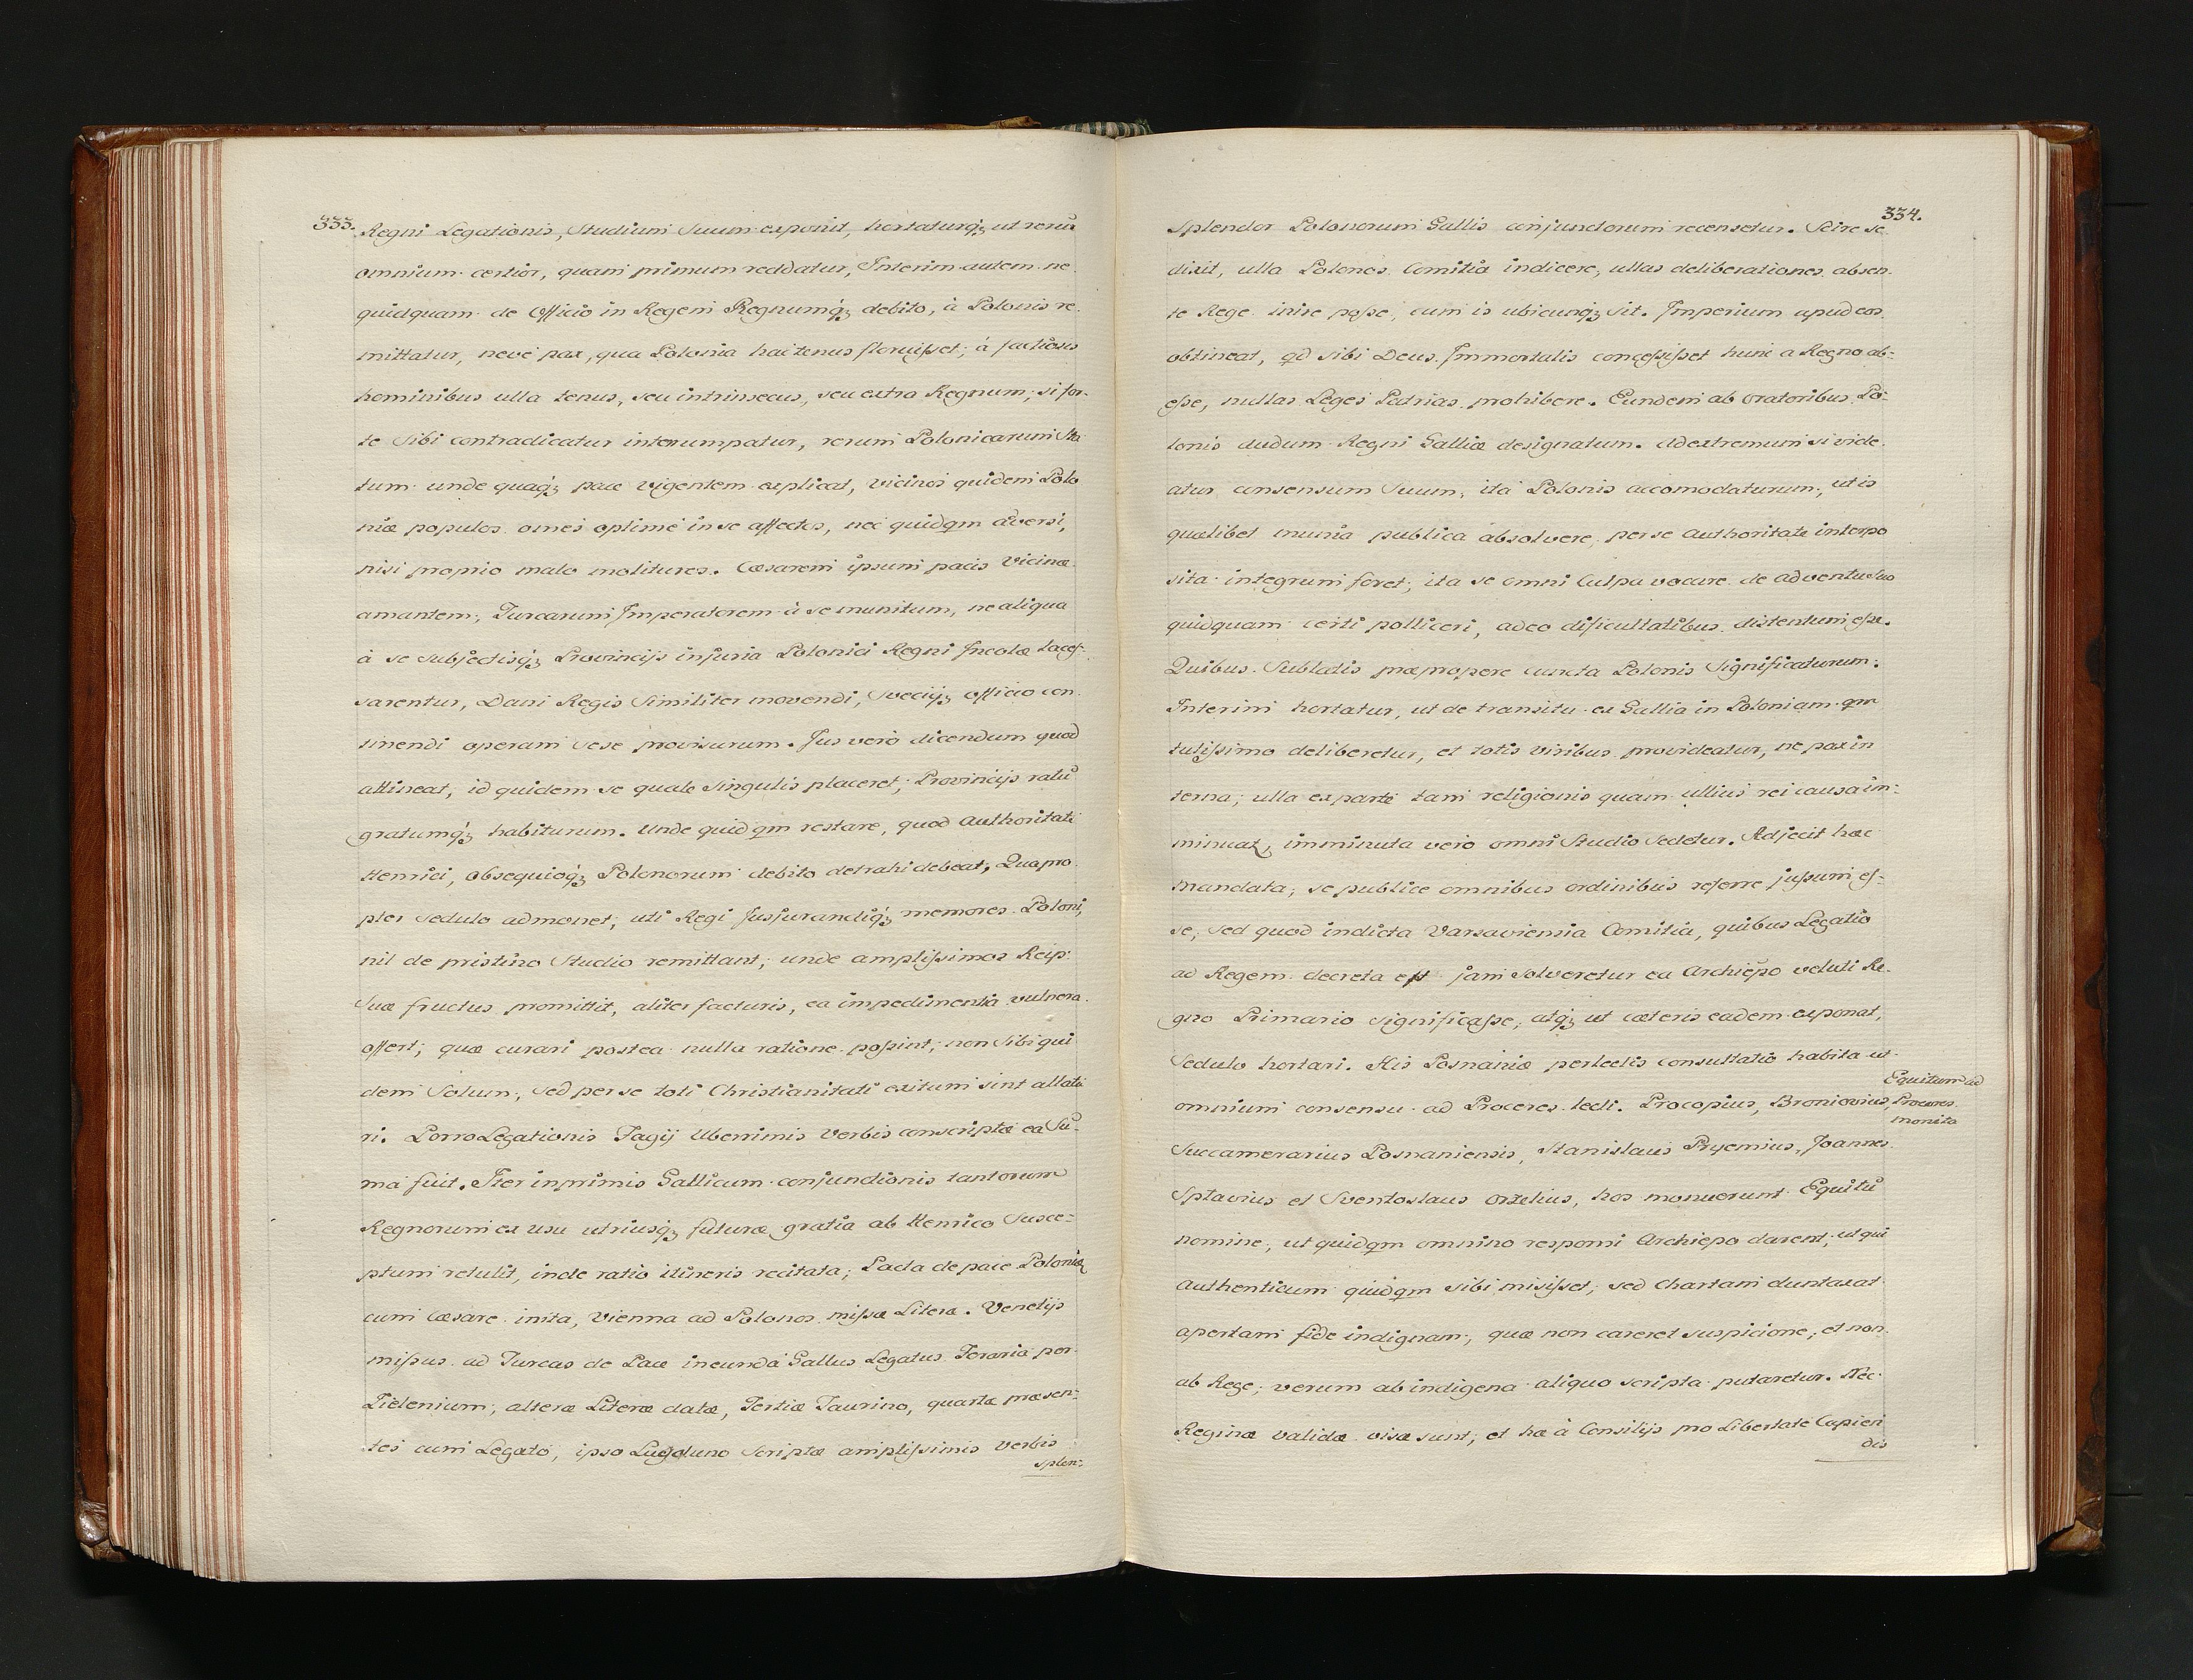 333.
Regni Legationis, Studium Suum exponit, hortaturq́ꝫ ut rerũ
omnium certior, quam primum reddatur, Interim autem ne
quidquam de Officio in Regem Regnumq́ꝫ debito, à Polonis re-
mittatur, nevé pax, qua Polonia hactenus floruiſset; á factiosis
hominibus ulla tenus, seu intrinsecus, seu extra Regnum; si for-
te Sibi contradicatur interumpatur, rerum Polonicarum Sta
tum unde quaq́ꝫ pace vigentem explicat, vicinos quidem Polo
niæ populos omes optimé in se affectos, nec quidqm adversi,
nisi proprio malo molituros. Cæsarem ipsum pacis Vicinæ
amantem, Turcarum Imperatorem á se munitum, ne aliqua
à se subjectisq́ꝫ Provincijs injuria Polonici Regni Incolæ laceſ-
sarentur, Dani Regis Similiter movendi, Sveciq́ꝫ officio con-
tinendi operam sese provisurum. Jus veró dicendum quod
attineat, id quidem se quale Singulis placeret, Provincijs ratũ
gratumq́ꝫ habiturum. Unde quidqm restare, quod Authoritati
Henrici, Obsequioq́ꝫ Polonorum debito detrahi debeat, Quapro
pter sedulo admonet; uti Regi Jusjurandiq́ꝫ memores Poloni,
nil de pristino Studio remittant; unde ampliſsimos Reip:
Suæ fructus promittit, aliter facturis, ea impedimenta vulnera
offert; quæ curari postea nulla ratione poſsint; non Sibi qui
dem Solum, sed per se toti Christianitati exitum sint allatu
ri. Porro Legationis Fagij Uberrimis Verbis conscriptæ ea Sũ-
ma fuit. Iter inprimis Gallicum conjunctionis tantorum
Regnorum ex usu utriusq́ꝫ futuræ gratia ab Henrico Susce-
ptum retulit, inde ratio itineris recitata; Pacta de pace Poloniæ
cum Cæsare inita, Vienna ad Polonos miſsæ Literæ. Venetijs
miſsus ad Turcas de Pace ineunda Gallus Legatus Feraria per
Fielenium, alteræ Literæ datæ, Tertiæ Taurino, quartæ præsen-
tes cum Legato, ipso Lugduno Scriptæ ampliſsimis verbis
splen:
334.
splendor Polonorum Gallis conjunctorum recensetur. Scire se
dixit, ulla Polonos Comitia indicere, ullas deliberationes absen
te Rege inire poſse, cum is ubicunq́ꝫ sit. Imperium apud eos
obtineat, qd sibi Deus Immortalis conceſsiſset hunc a Regno ab-
eſse, nullas Leges Patrias prohibere. Eundem ab Oratoribus Po-
lonis dudum Regni Galliæ designatum. Ad extremum si vide
atur consensum Suum, ita Polonis accomodaturum, ut is
quælibet munia publica absolvere, per se Authoritate interpo
sita integrum foret, ita se omni Culpa vacare de adventu Suo
quidquam certi polliceri, adeo dificultatibus distentum eſse.
Quibus Sublatis præpropere cuncta Polonis Significaturum.
Interim hortatur, ut de transitu ex Gallia in Poloniam qm
tutiſsimo deliberetur, et totis viribus provideatur, ne pax in
terna, ulla ex parte tam religionis quam ullius rei causa im-
minuatꝫ, imminuta vero omni Studio Sedetur. Adjecit hæc
mandata, se publice omnibus ordinibus referre juſsum eſ-
se, sed quod indicta Varsaviensia Comitia, quibus Legatio
ad Regem decreta est jam solveretur ea Archiepo veluti Re-
gno Primario significaſse, atq́ꝫ ut cæteris eadem exponat,
Sedulo hortari. His Posnaniæ perlectis consultatio habita ut
Equitum ad
Proceres
monita
omnium consensu ad Proceres lecti. Procopius, Broniovius,
Succamerarius Posnaniensis, Stanislaus Pryemius, Joannes
Sptavius et Sventoslaus Orzelius, hos monuerunt Equitũ
nomine, ut quidqm omnino responsi Archiepo darent, ut qui
authenticum quidqm sibi misiſset, sed Chartam duntaxat
apertam fide indignam, quæ non careret suspicione, et non
ab Rege, verum ab indigena aliquo scripta putaretur. Nec
Reginæ validæ visæ sunt, et hæ à Consilijs pro Libertate Capien
dis